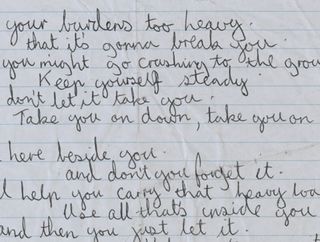 your burdens too heavy.
that it's gonna break you.
you might go crashing to the grou
Keep yourself steady
don't let it take you.
Take you on down, take you on
here beside you.
and don't you forget it.
ll help you carry that heavy loa
Use all that's inside you
and then you just let it.